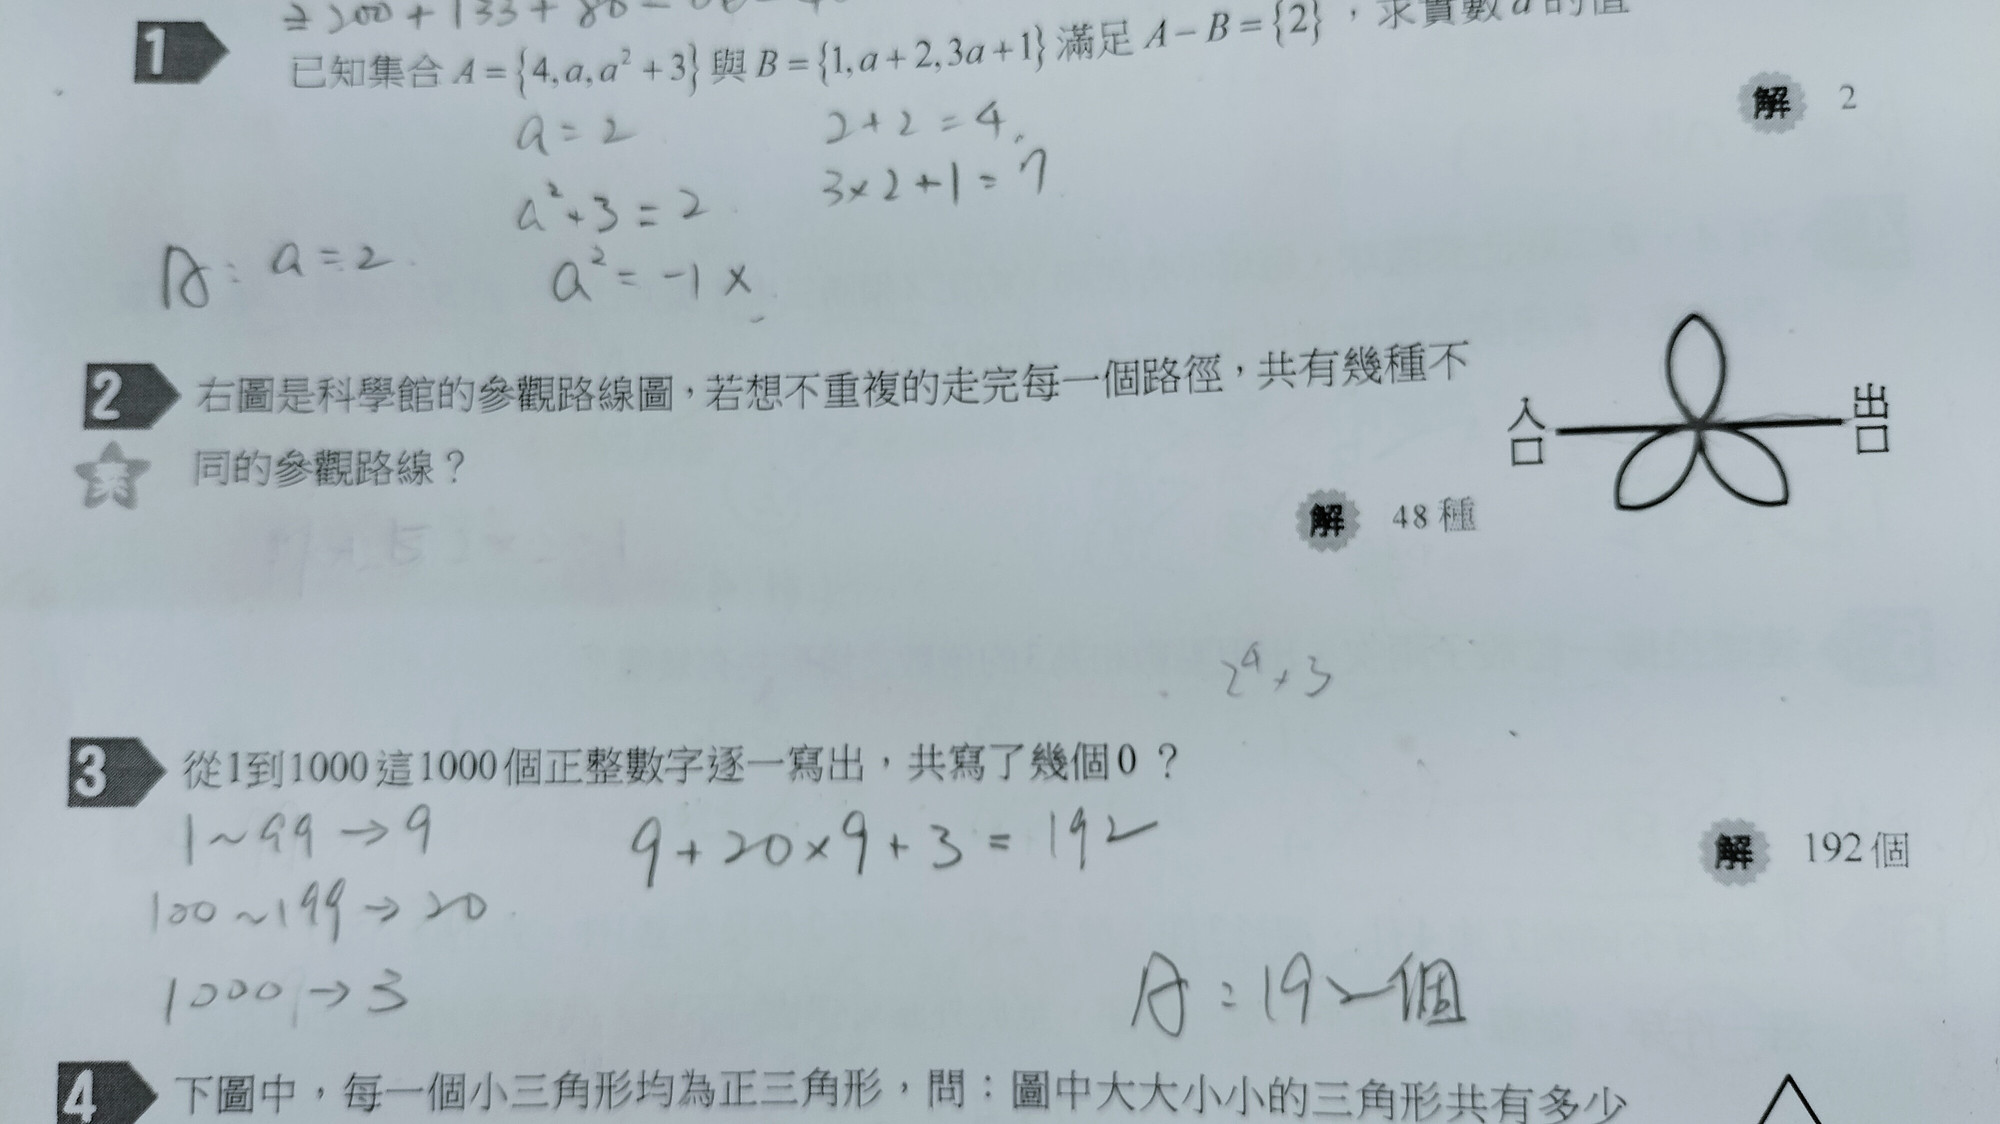 ≥200+133+80-
1 已知集合 A={4,a,a²+3} 與 B={1,a+2,3a+1} 滿足 A-B={2},求實數a的值
解 2
a=2 2+2=4
a²+3=2 3×2+1=7
A: a=2 a²=-1 ×
2 右圖是科學館的參觀路線圖,若想不重複的走完每一個路徑,共有幾種不
同的參觀路線?
入口
出口
解 48種
3 從1到1000這1000個正整數字逐一寫出,共寫了幾個0?
1~99→9 9+20×9+3=192
解 192個
100~199→20
1000→3
A:192個
4 下圖中,每一個小三角形均為正三角形,問:圖中大大小小的三角形共有多少